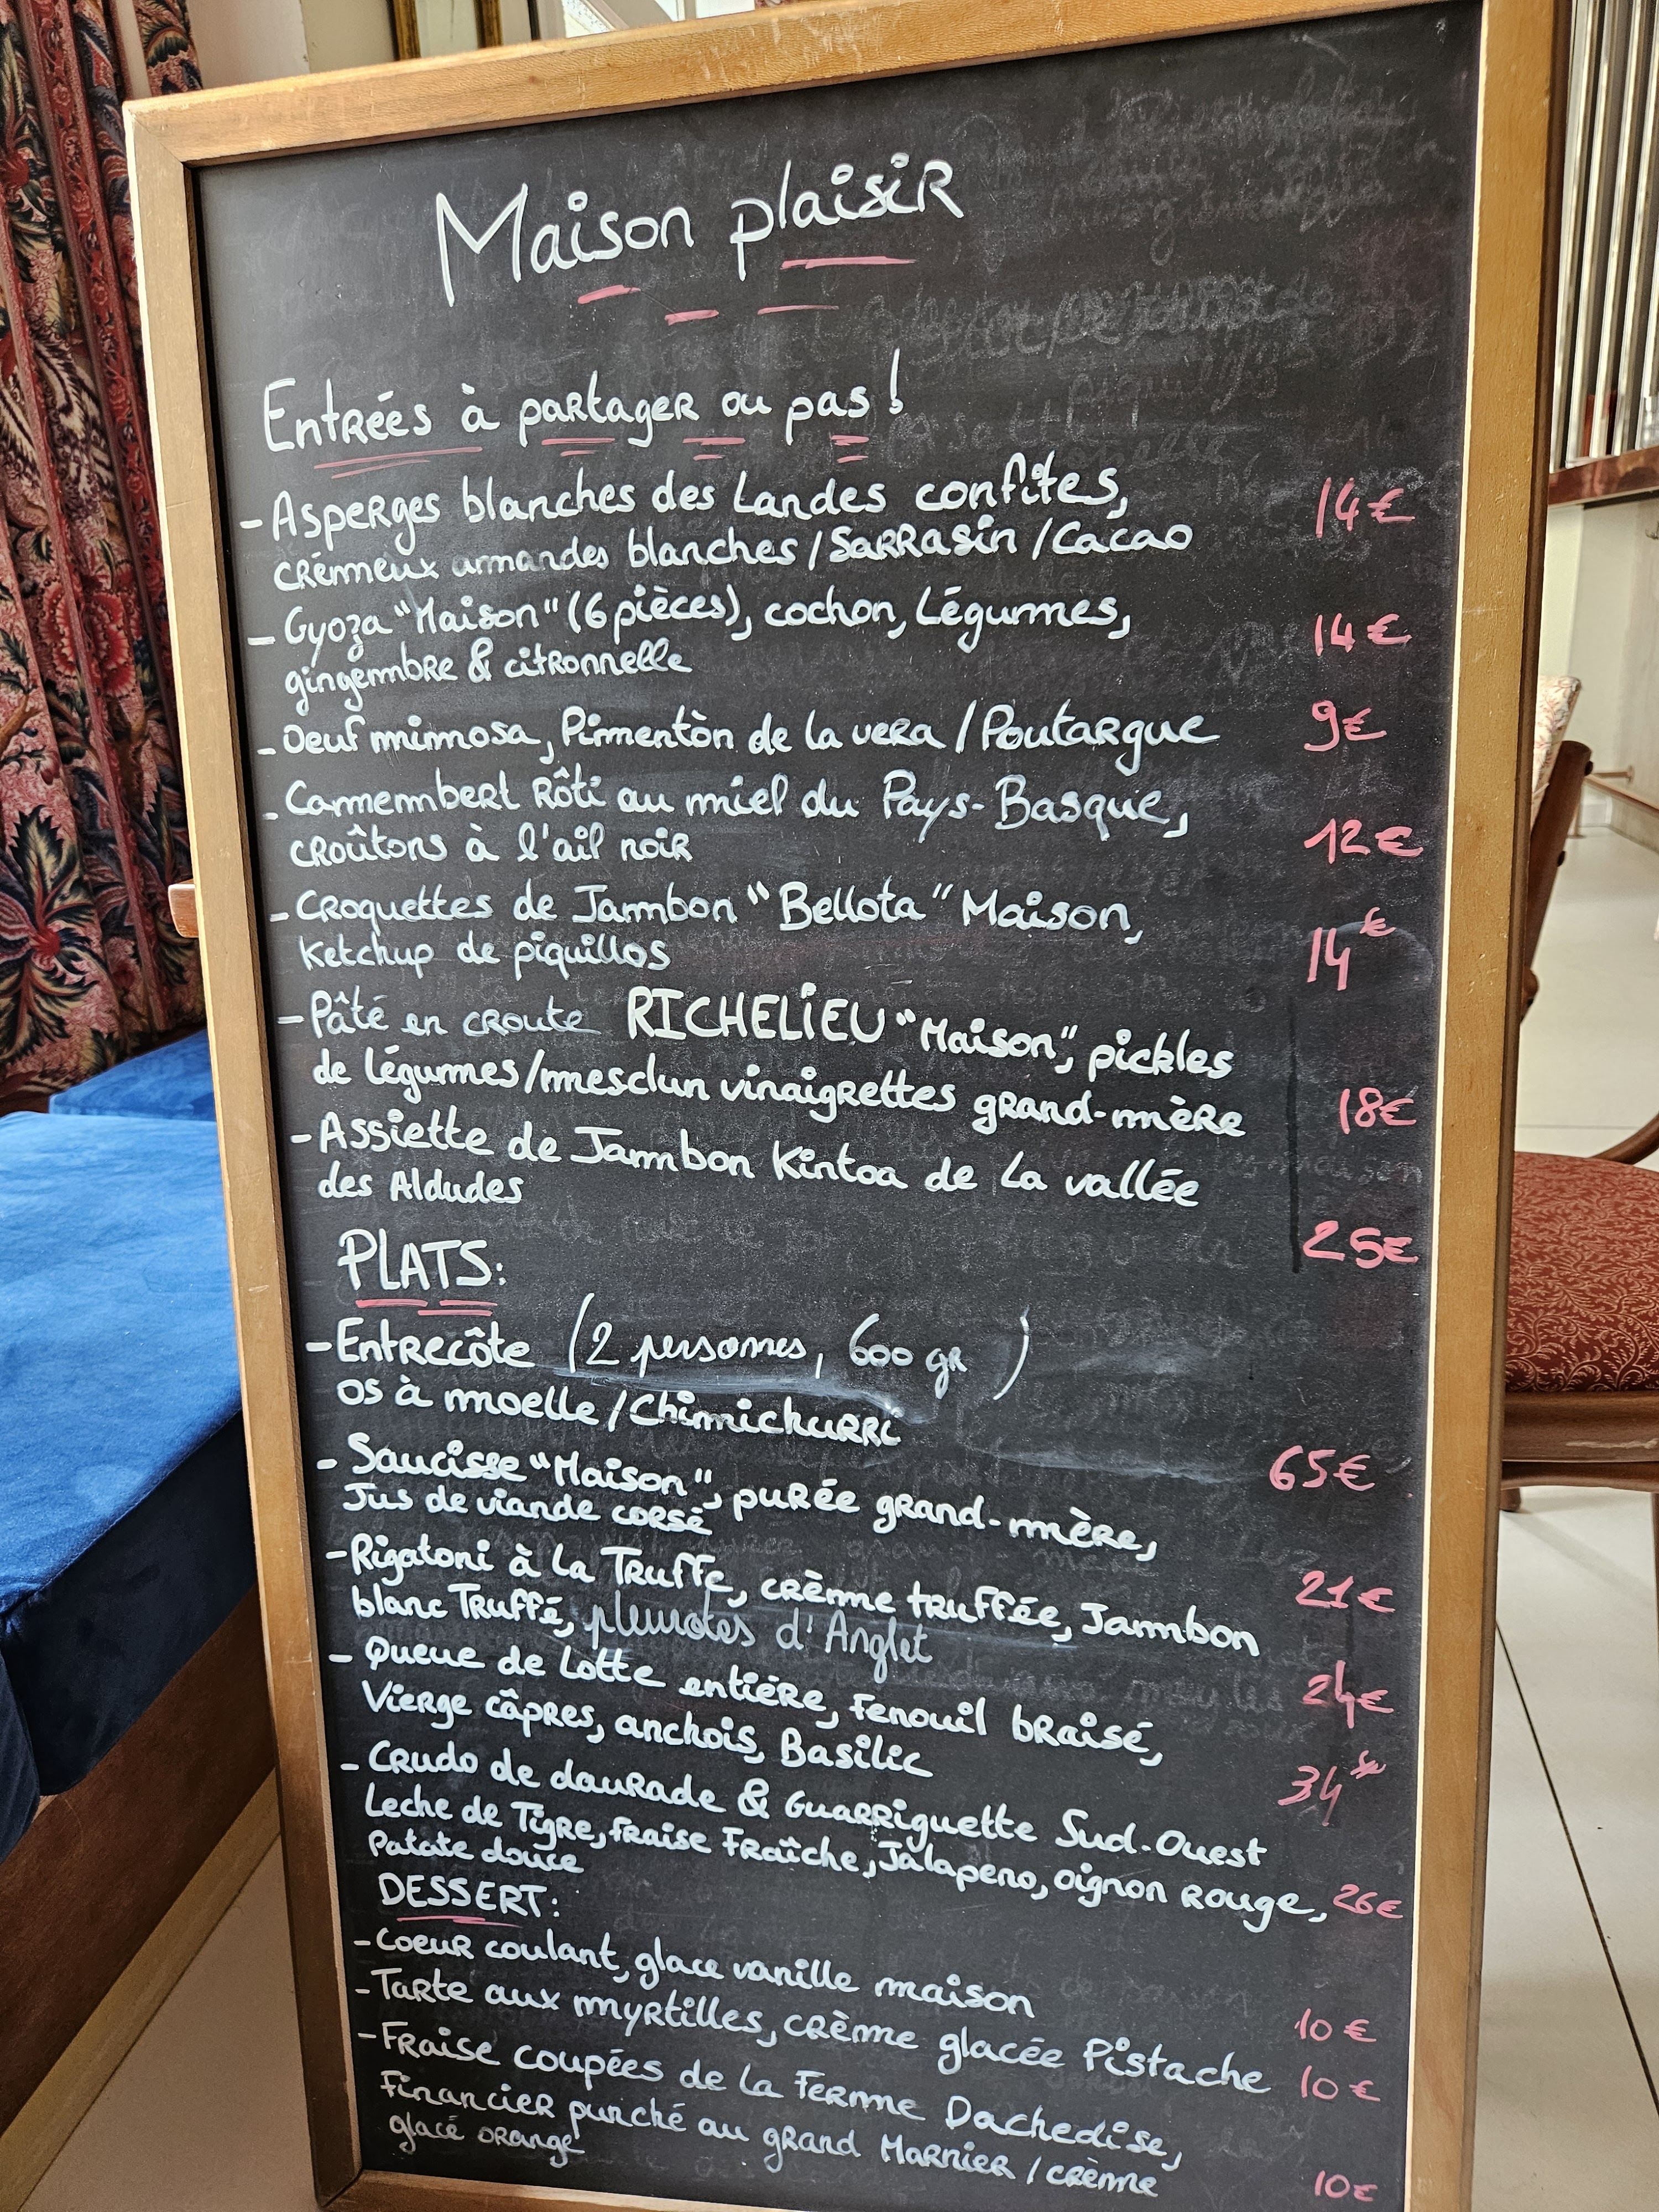 Maison plaisir
Entrées à partager ou pas !
- Asperges blanches des Landes confites,
crémeux amandes blanches / Sarrasin / Cacao 14€
- Gyoza "Maison" (6 pièces), cochon, Légumes, 14€
gingembre & citronnelle
- Oeuf mimosa, Pimentòn de la vera / Poutargue 9€
- Camembert Rôti au miel du Pays-Basque,
croûtons à l'ail noir 12€
- Croquettes de Jambon "Bellota" Maison,
Ketchup de piquillos 14€
- Pâté en croute RICHELIEU "Maison", pickles
de légumes/mesclun vinaigrettes grand-mère 18€
- Assiette de Jambon Kintoa de La vallée
des Aldudes 25€
PLATS:
- Entrecôte (2 personnes, 600 gr)
os à moelle / Chimichurri 65€
- Saucisse "Maison", purée grand-mère,
Jus de viande corsé 21€
- Rigatoni à La Truffe, crème truffée, Jambon
blanc Truffé, pleurotes d'Anglet 24€
- Queue de Lotte entiére, Fenouil braisé,
Vierge câpres, anchois, Basilic 34€
- Crudo de daurade & Guarriguette Sud-Ouest
Leche de Tigre, fraise Fraîche, Jalapeno, oignon rouge, 26€
Patate douce
DESSERT:
- Coeur coulant, glace vanille maison 10€
- Tarte aux myrtilles, crème glacée Pistache 10€
- Fraise coupées de la Ferme Dachedise,
Financier punché au grand Marnier / crème 10€
glacé orange